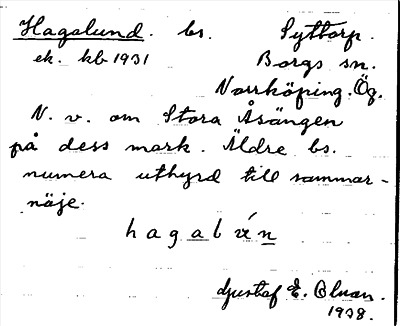 Hagalund. bs. Syttorp.
ek. kb 1931 Borgs sn.
Norrköping. Ög.
N. v. om Stora Åsängen
på dess mark. Äldre bs.
numera uthyrd till sommar-
näje.
Gustaf E. Blman.
1938.